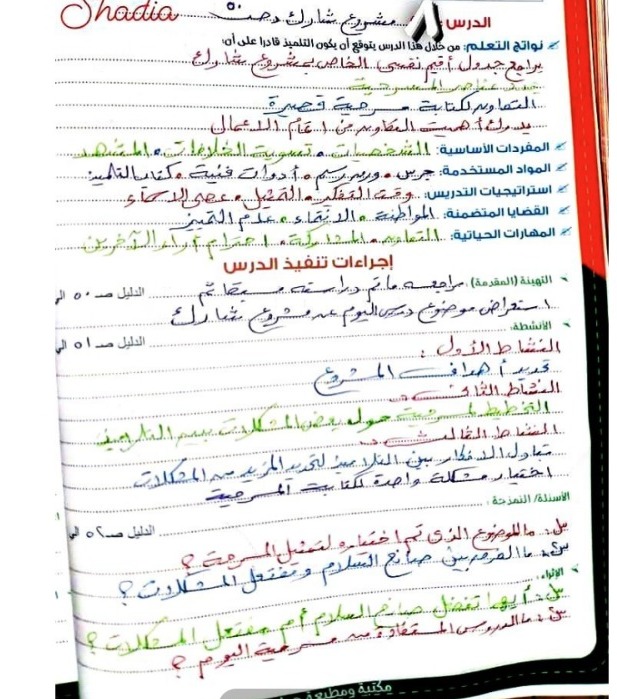 Shadia
الدرس : مشروع شارك ص ٥٠
نواتج التعلم: من خلال هذا الدرس يتوقع أن يكون التلميذ قادرا على أن:
يراجع جدول أقيم نفسى الخاص بمشروع شارك
عناصر المسرحية
التعاون لكتابة مسرحية قصيرة
يدرك أهمية التعاون من اتمام الاعمال
المفردات الأساسية: الشخصيات . تسوية الخلافات . المشهد
المواد المستخدمة: جرس . ورق رسم . أدوات فنية . كتاب التلميذ
استراتيجيات التدريس: وقت التفكير . التمثيل . عصى الاسماء
القضايا المتضمنة: المواطنة . الانتماء . عدم التمييز
المهارات الحياتية: التعاون . المشاركة . احترام أراء الآخرين
إجراءات تنفيذ الدرس
التهيئة (المقدمة): مراجعه ما تم دراسته مسبقا ثم الدليل صـ ٥٠ الي
استعراض موضوع درس اليوم عن مشروع شارك
الأنشطة: الدليل صـ ٥١ الي
النشاط الأول :
تحديد أهداف المشروع
النشاط الثانى :
التخطيط لمسرحية حول بعض المشكلات بين التلاميذ
النشاط الثالث :
تبادل الافكار بين التلاميذ لتحديد المزيد من المشكلات
اختيار مشكلة واحدة لكتابة المسرحية
الأسئلة/ النمذجة : الدليل صـ ٥٢ الي
س١: ما الموضوع الذى تم اختياره لتمثيل المسرحية ؟
س٢: ما الفرق بين صانع السلام ومفتعل المشكلات ؟
الإثراء:
س١: أيهما تفضل صانع السلام أم مفتعل المشكلات ؟
س٢: ما الدروس المستفادة من مسرحية اليوم ؟
مكتبة ومطبعة